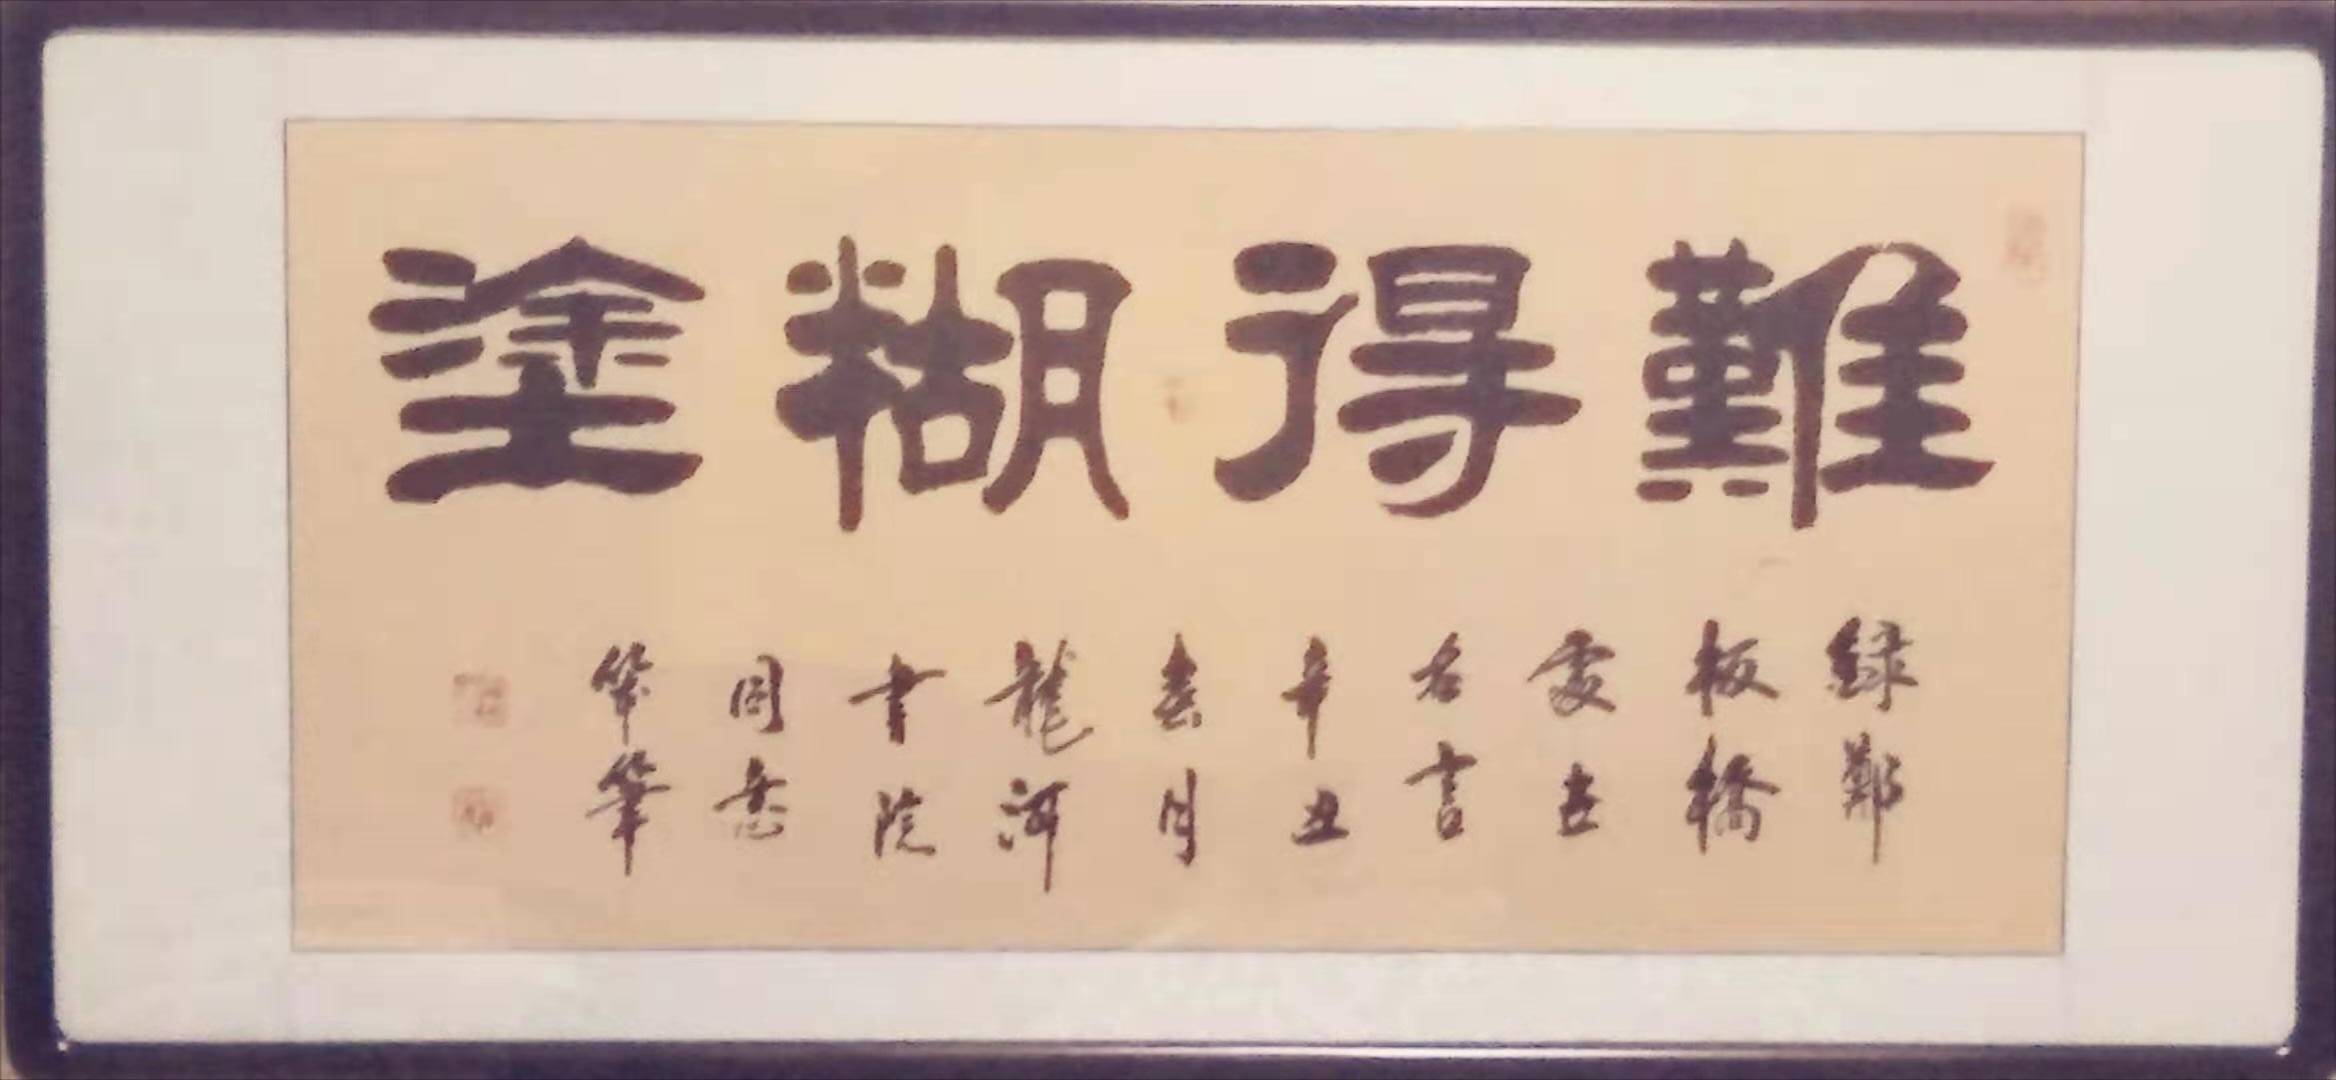 難得糊塗
録鄭
板橋
處世
名言
辛丑
春月
龍河
書院
周
筆